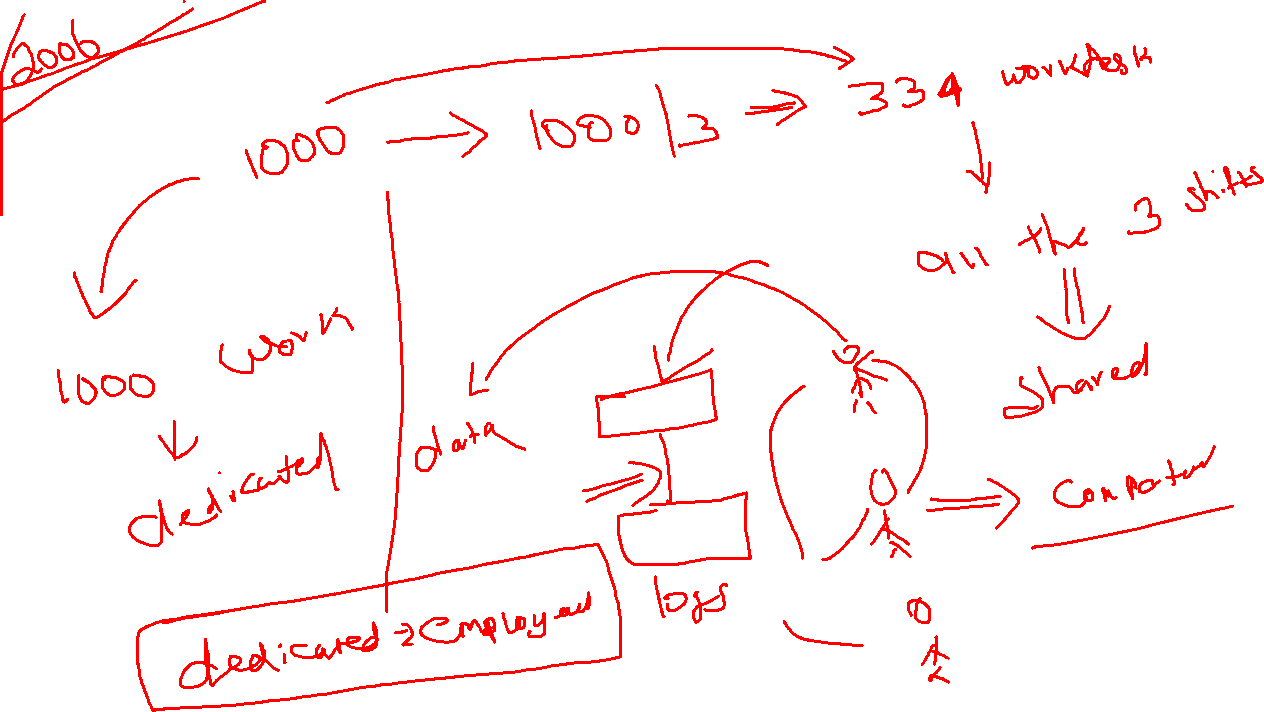 2006
1000 → 1000/3 ⇒ 334 workdesk
all the 3 shifts
shared
computer
1000 work
dedicated
data
logs
dedicated → Employee